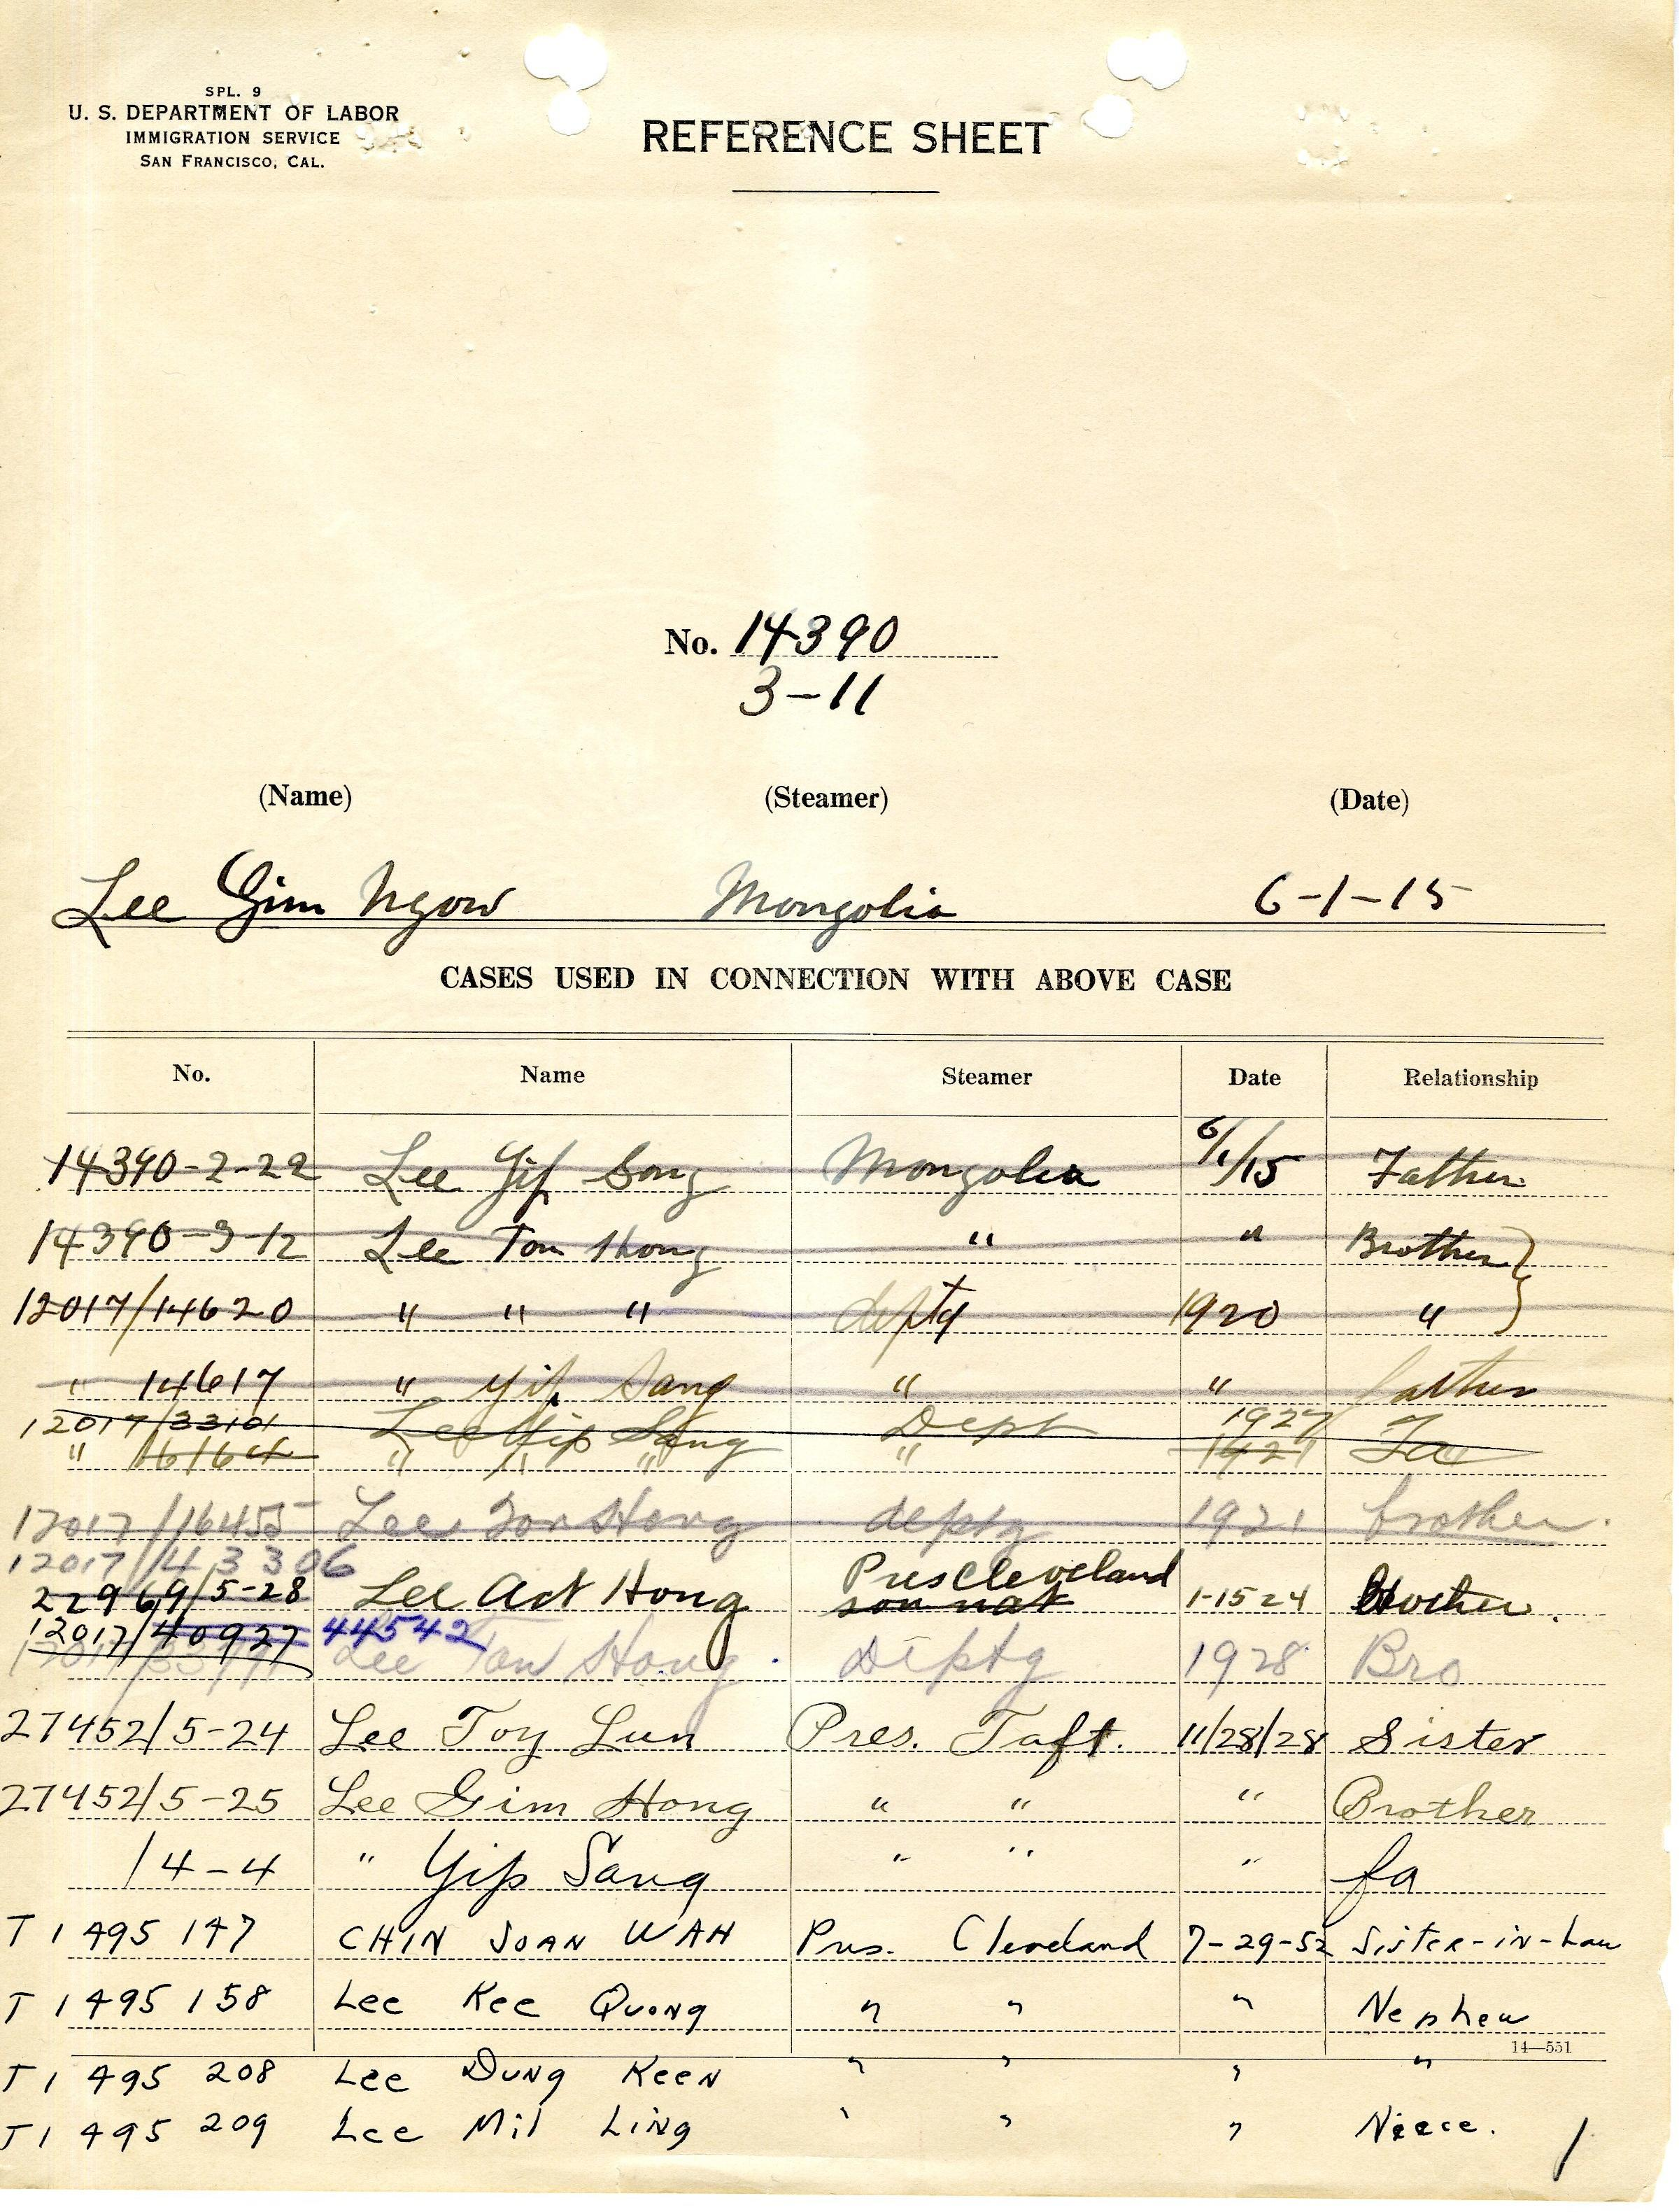 SPL. 9
U. S. DEPARTMENT OF LABOR
IMMIGRATION SERVICE
SAN FRANCISCO, CAL.
REFERENCE SHEET
No. 14390
3-11
(Name) (Steamer) (Date)
Lee Gim Ngow Mongolia 6-1-15
CASES USED IN CONNECTION WITH ABOVE CASE
No. Name Steamer Date Relationship
14390-2-22 Lee Yip Song Mongolia 6/1/15 Father
14390-3-12 Lee Ton Hong " " Brother
12017/14620 " " " deptg 1920 "
" 14617 " Yip Sang " " father
12017/33101 Lee Yip Sang Dept 1927 Fa
" 16164 " " " " 1921
12017/16455 Lee Ton Hong deptg 1921 brother.
12017/43306
22969/5-28 Lee Act Hong Pres Cleveland 1-15 24 Brother.
12017/40927 44542
Lee Ton Hong. Deptg 1928 Bro
27452/5-24 Lee Toy Lun Pres. Taft. 11/28/28 Sister
27452/5-25 Lee Gim Hong " " " Brother
/4-4 " Yip Sang " " " fa
T 1 495 147 CHIN JOAN WAH Pres. Cleveland 7-29-52 Sister-in-Law
T 1 495 158 Lee Kee Quong " " " Nephew
14—551
T 1 495 208 Lee Dung Keen " " " "
T 1 495 209 Lee Mil Ling " " " Niece.